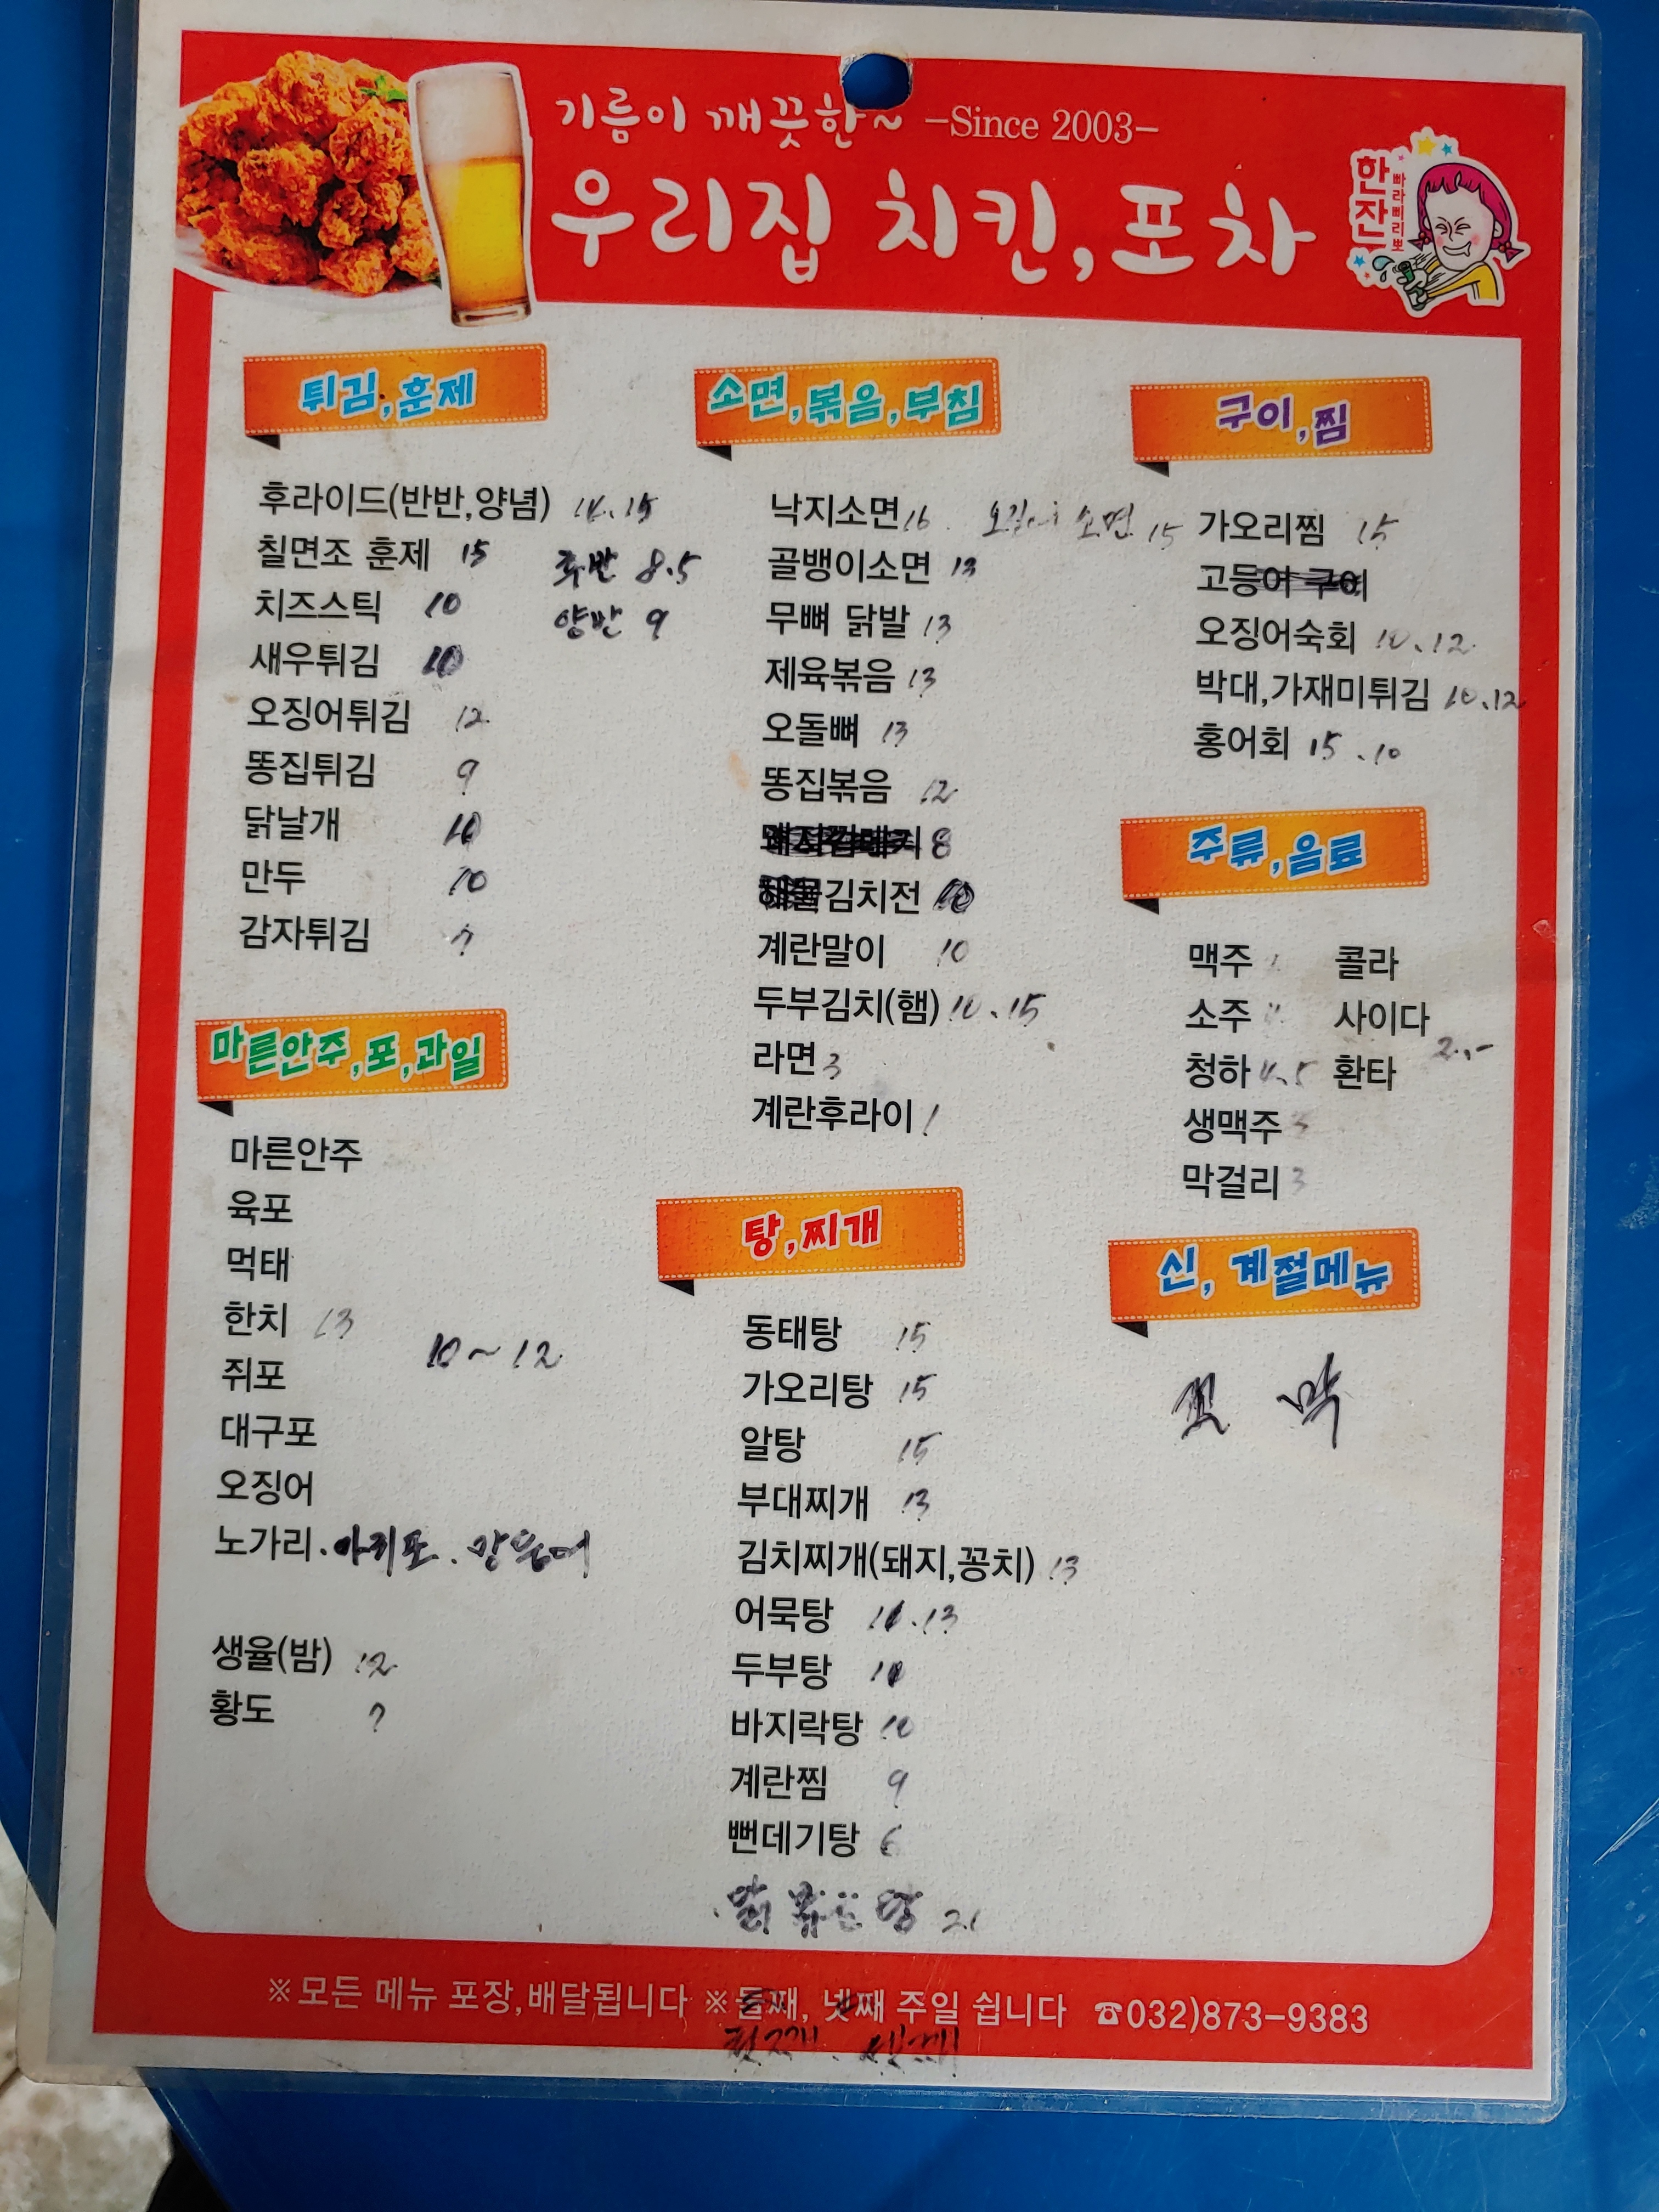 기름이 깨끗한~ -Since 2003-
우리집 치킨,포차
한잔
빠라삐리뽀
튀김,훈제
후라이드(반반,양념) 14.15
칠면조 훈제 15
후반 8.5
치즈스틱 10
양반 9
새우튀김 10
오징어튀김 12
똥집튀김 9
닭날개 10
만두 10
감자튀김 7
마른안주,포,과일
마른안주
육포
먹태
한치 13
10~12
쥐포
대구포
오징어
노가리.아귀포.
생율(밤) 12
황도 7
소면,볶음,부침
낙지소면 16 소면 15
골뱅이소면 13
무뼈 닭발 13
제육볶음 13
오돌뼈 13
똥집볶음 12
8
김치전 10
계란말이 10
두부김치(햄) 10.15
라면 3
계란후라이 1
탕,찌개
동태탕 15
가오리탕 15
알탕 15
부대찌개 13
김치찌개(돼지,꽁치) 13
어묵탕 .13
두부탕 10
바지락탕 10
계란찜 9
뻔데기탕 6
닭볶음탕
구이,찜
가오리찜 15
고등어 구이
오징어숙회 10.12
박대,가재미튀김 10.12
홍어회 15.10
주류,음료
맥주 콜라
소주 사이다
2.-
청하 4.5 환타
생맥주
막걸리 3
신, 계절메뉴
꼬막
※모든 메뉴 포장,배달됩니다 ※둘째, 넷째 주일 쉽니다 ☎032)873-9383